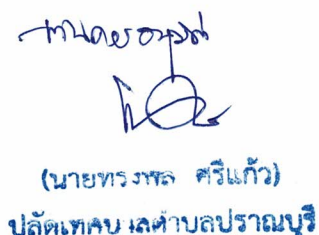 (นายทรงพล ศรีแก้ว)
ปลัดเทศบาลตำบลปราณบุรี